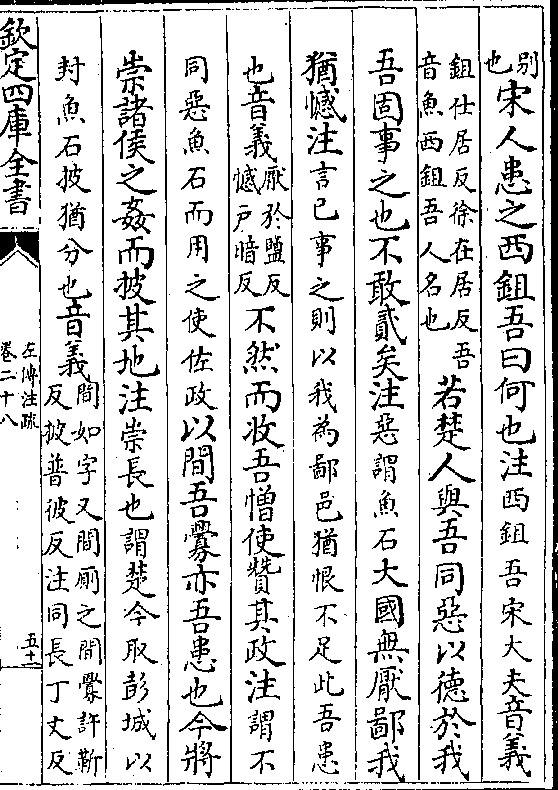 别也宋人患之西鉏吾曰何也注西鉏吾宋大夫音義
鉏仕居反徐在居反吾音魚西鉏吾人名也若楚人與吾同惡以德於我
吾固事之也不敢貳矣注惡謂魚石大國無厭鄙我
猶憾注言已事之則以我為鄙邑猶恨不足此吾患
也音義厭於鹽反憾戸暗反不然而收吾憎使贊其政注謂不
同惡魚石而用之使佐政以間吾釁亦吾患也今將
崇諸侯之姦而披其地注崇長也謂楚今取彭城以
封魚石披猶分也音義間如字又間厠之間釁許靳反披普彼反注同長丁丈反
欽定四庫全書
左傳注疏
卷二十八
五十